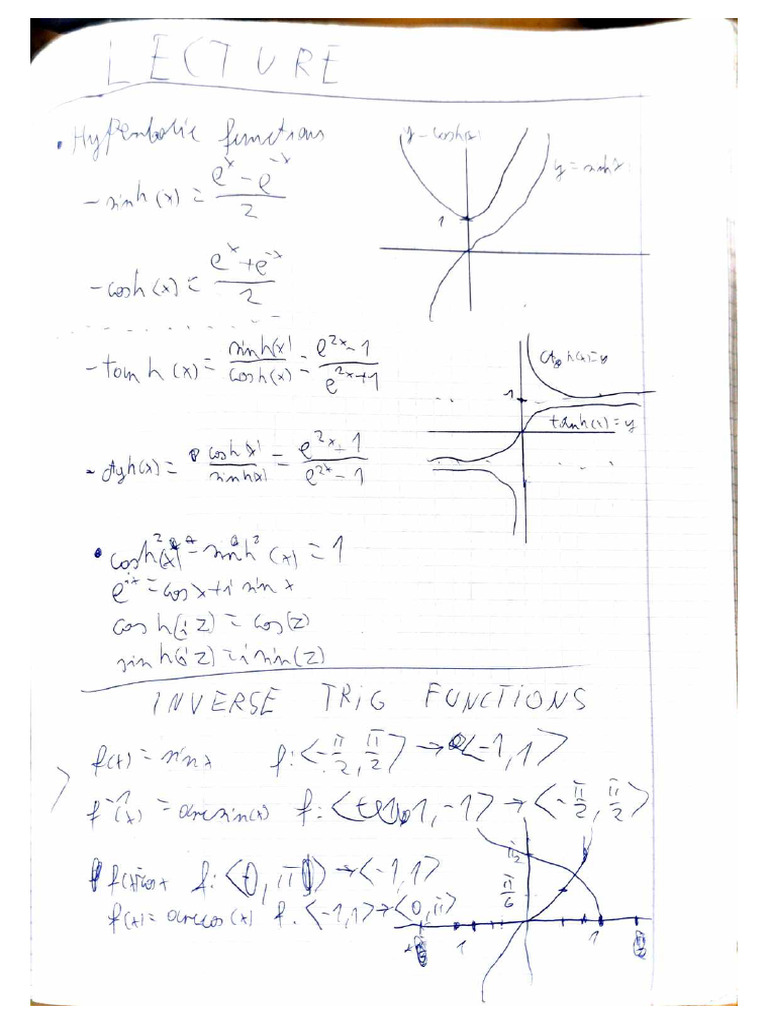 LECTURE
• Hyperbolic functions
- sinh(x) = (e^x - e^-x)/2
y = cosh(x)
y = sinh x
1
- cosh(x) = (e^x + e^-x)/2
- tanh(x) = sinh(x)/cosh(x) = (e^2x - 1)/(e^2x + 1)
ctgh(x) = y
1
tanh(x) = y
- ctgh(x) = cosh(x)/sinh(x) = (e^2x + 1)/(e^2x - 1)
• cosh²(x) - sinh²(x) = 1
e^ix = cos x + i sin x
cosh(iz) = cos(z)
sinh(iz) = i sin(z)
INVERSE TRIG FUNCTIONS
f(x) = sin x f: <-π/2, π/2> → <-1, 1>
f^-1(x) = arcsin(x) f: < 1, -1> → <-π/2, π/2>
f(x) = cos x f: <0, π> → <-1, 1>
f(x) = arccos(x) f: <-1, 1> → <0, π>
π/2
π/6
1 1